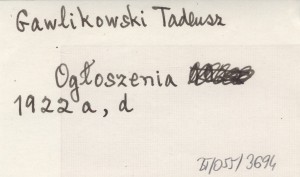 Gawlikowski Tadeusz
Ogłoszenia
1922 a, d
II/055/3694